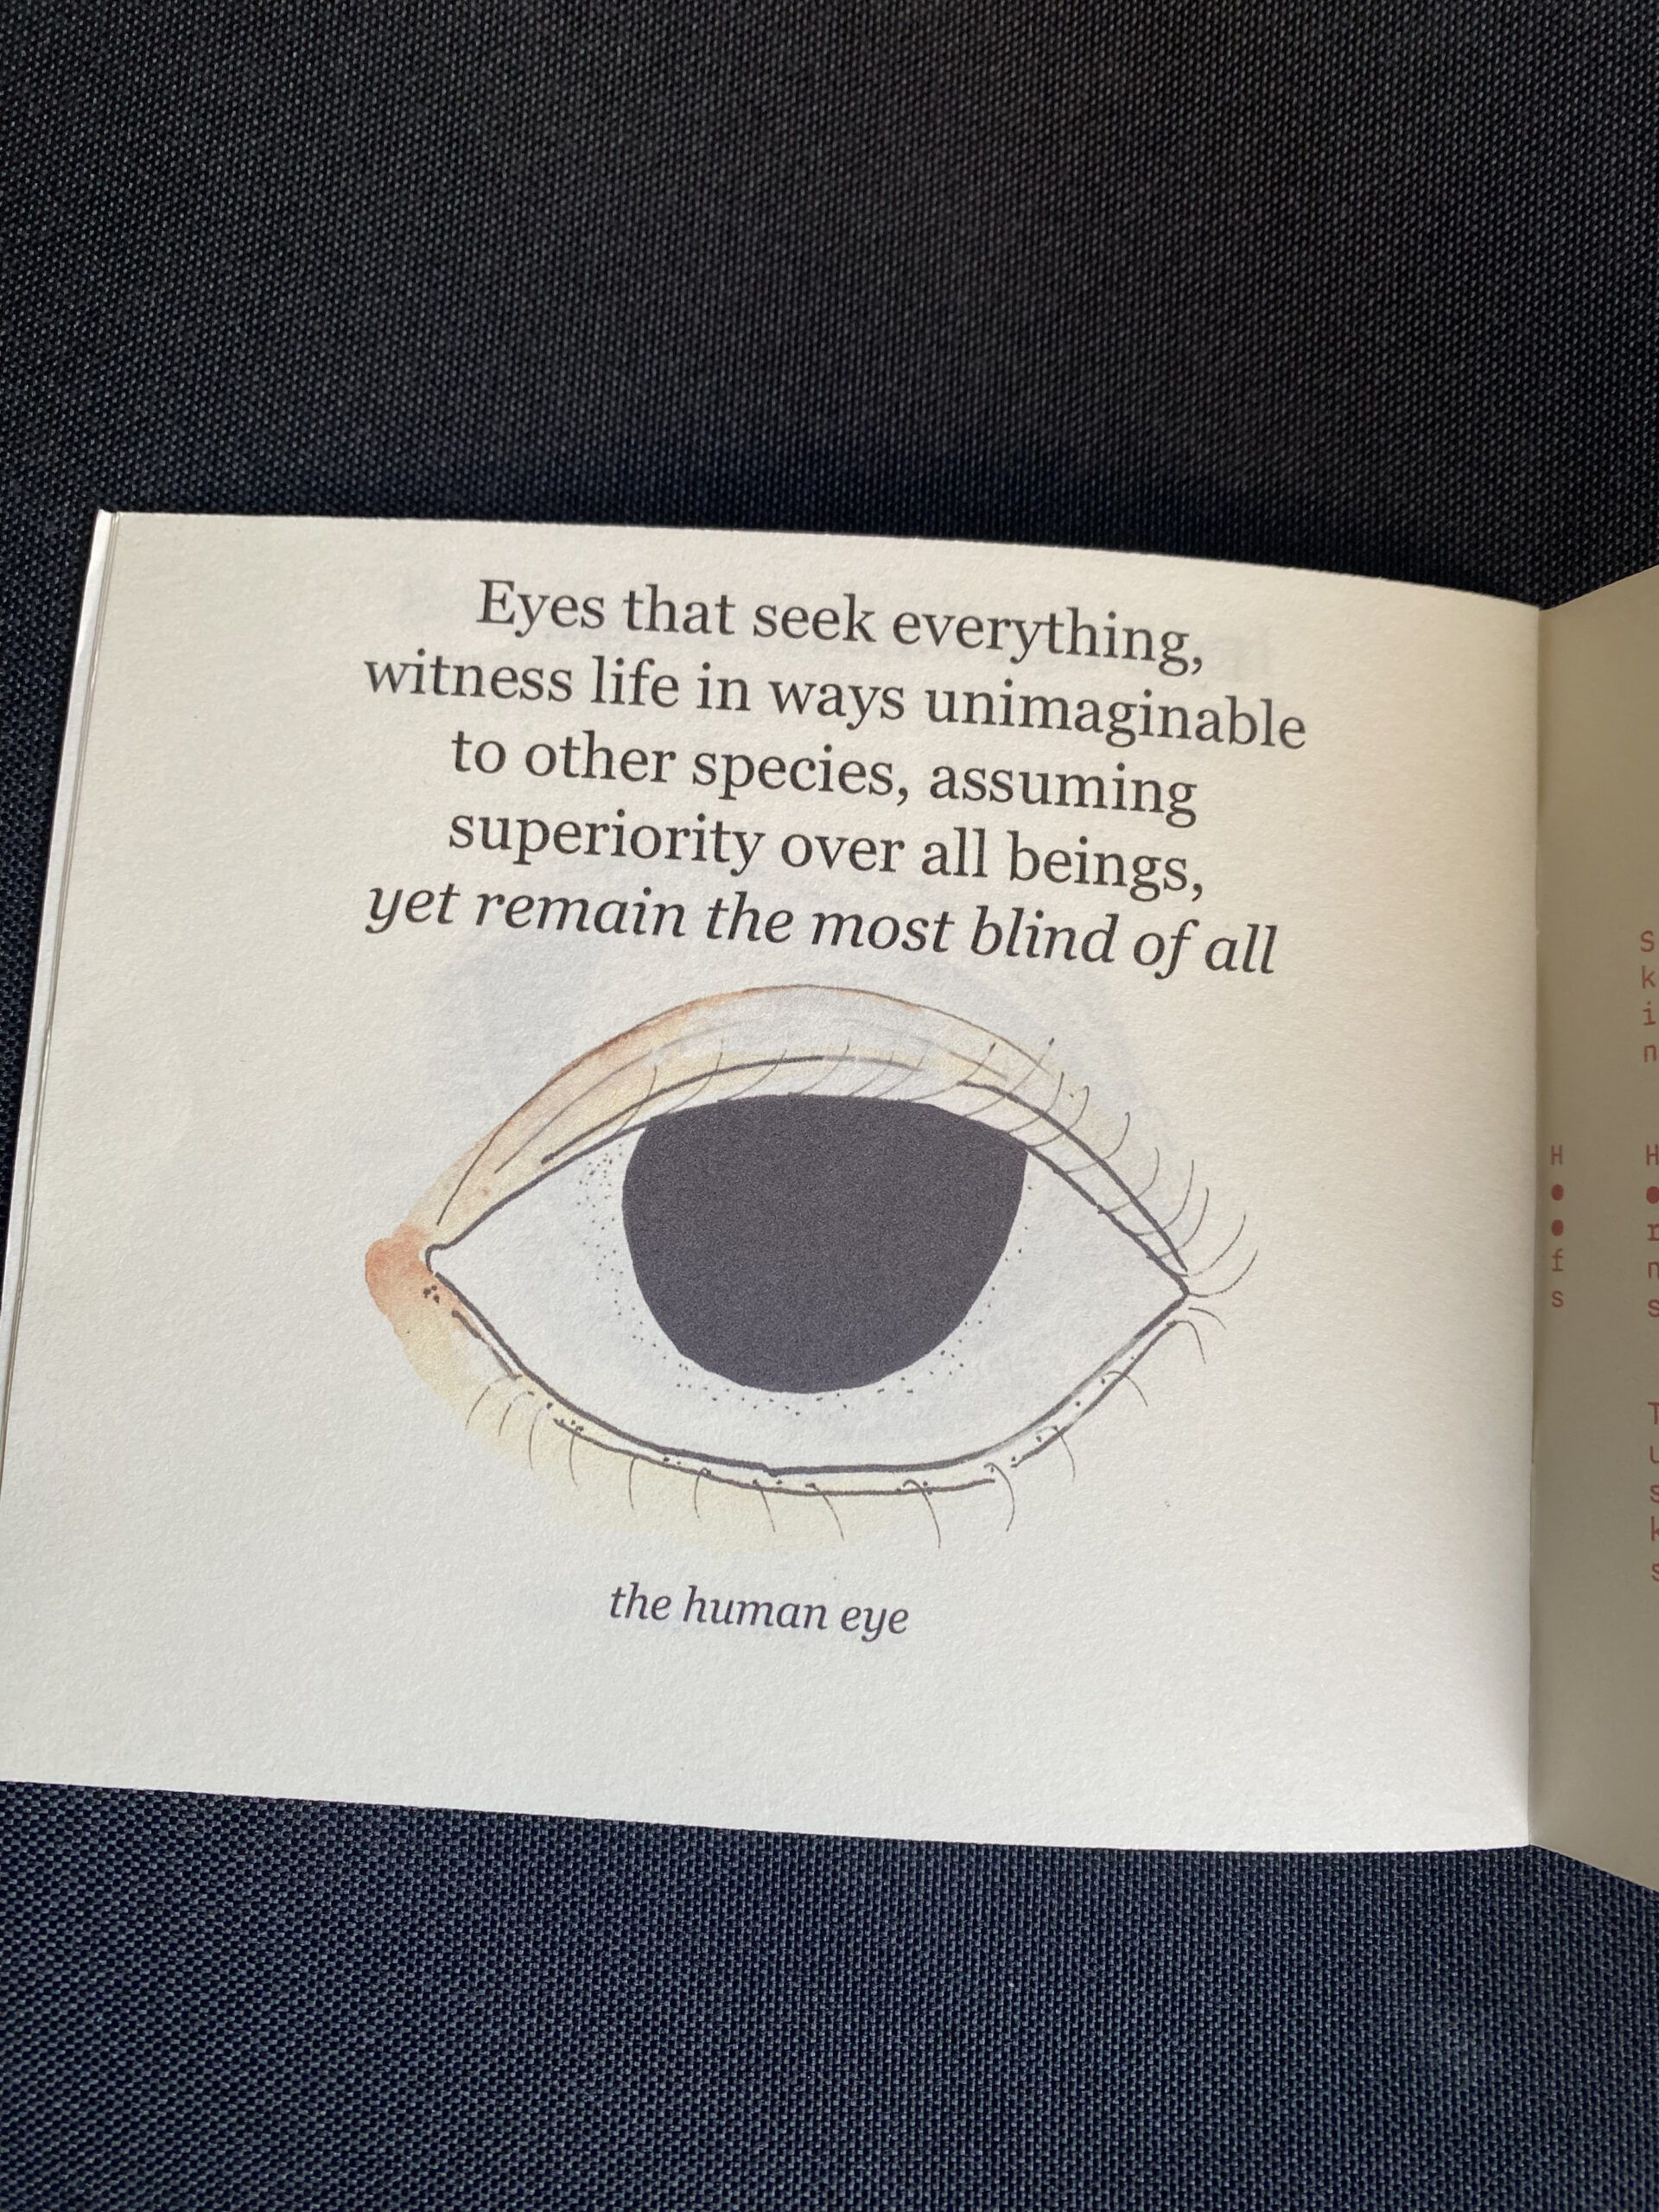 Eyes that seek everything,
witness life in ways unimaginable
to other species, assuming
superiority over all beings,
yet remain the most blind of all
the human eye
Skin
Hoofs
Horns
Tusks